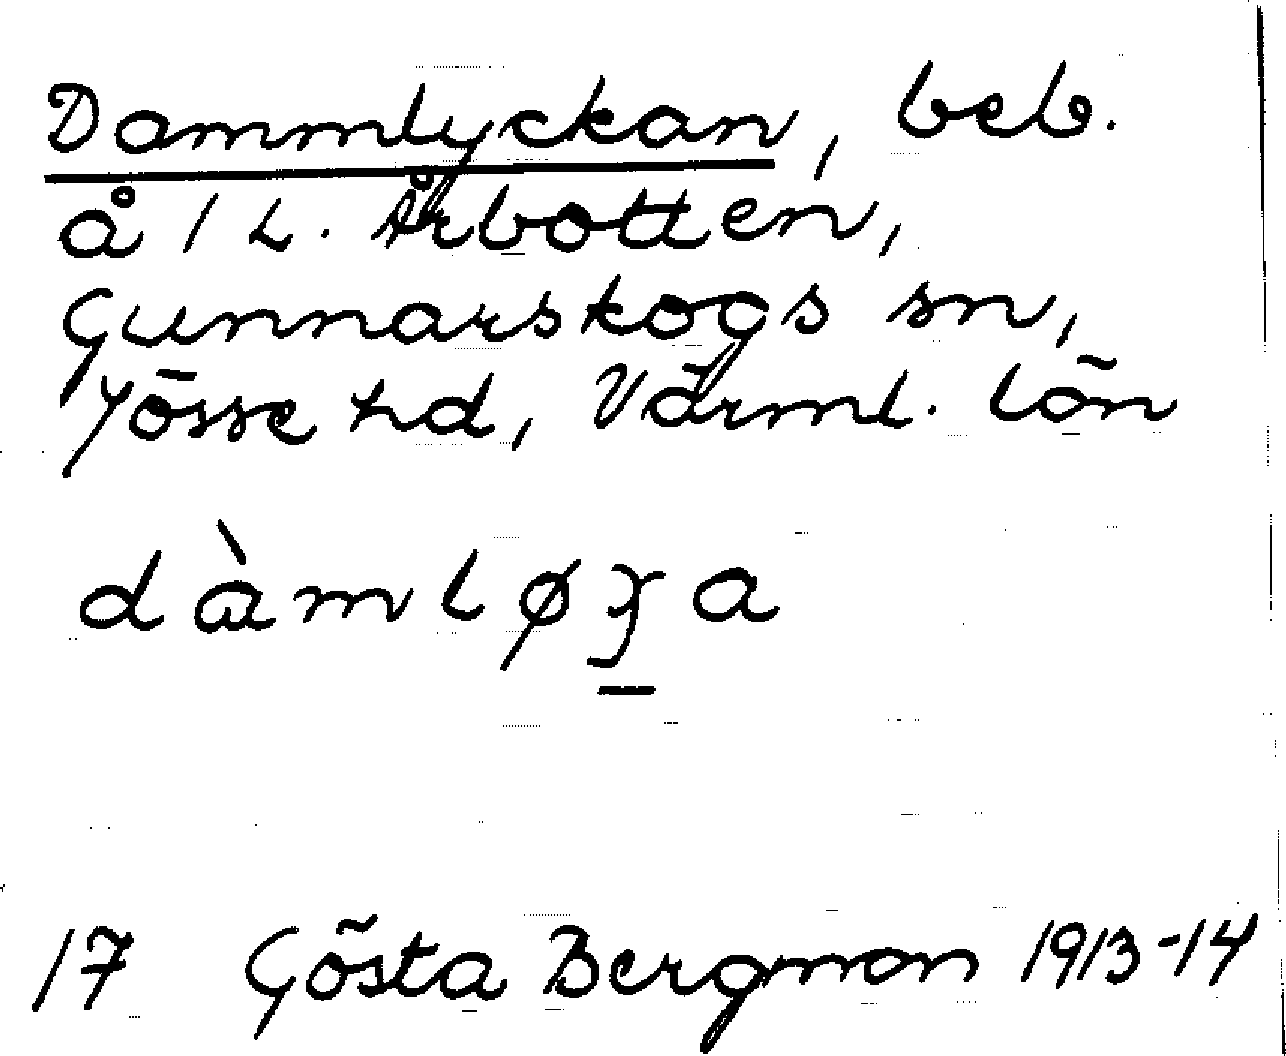 Dammlyckan, beb.
å 1 L. Årbotten,
Gunnarskogs sn,
Jösse hd, Värml. län
17 Gösta Bergman 1913-14